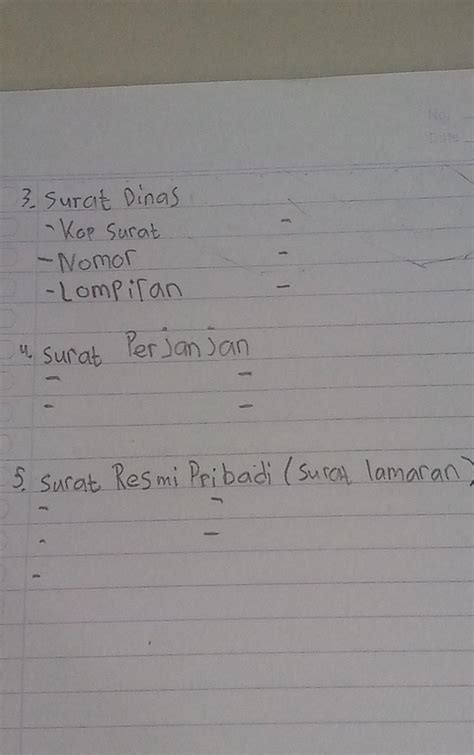 No
Date
3. Surat Dinas
- Kop Surat -
- Nomor -
- Lompiran -
4. Surat Perjanjan
- -
- -
5. Surat Resmi Pribadi (Surat lamaran)
- -
- -
-